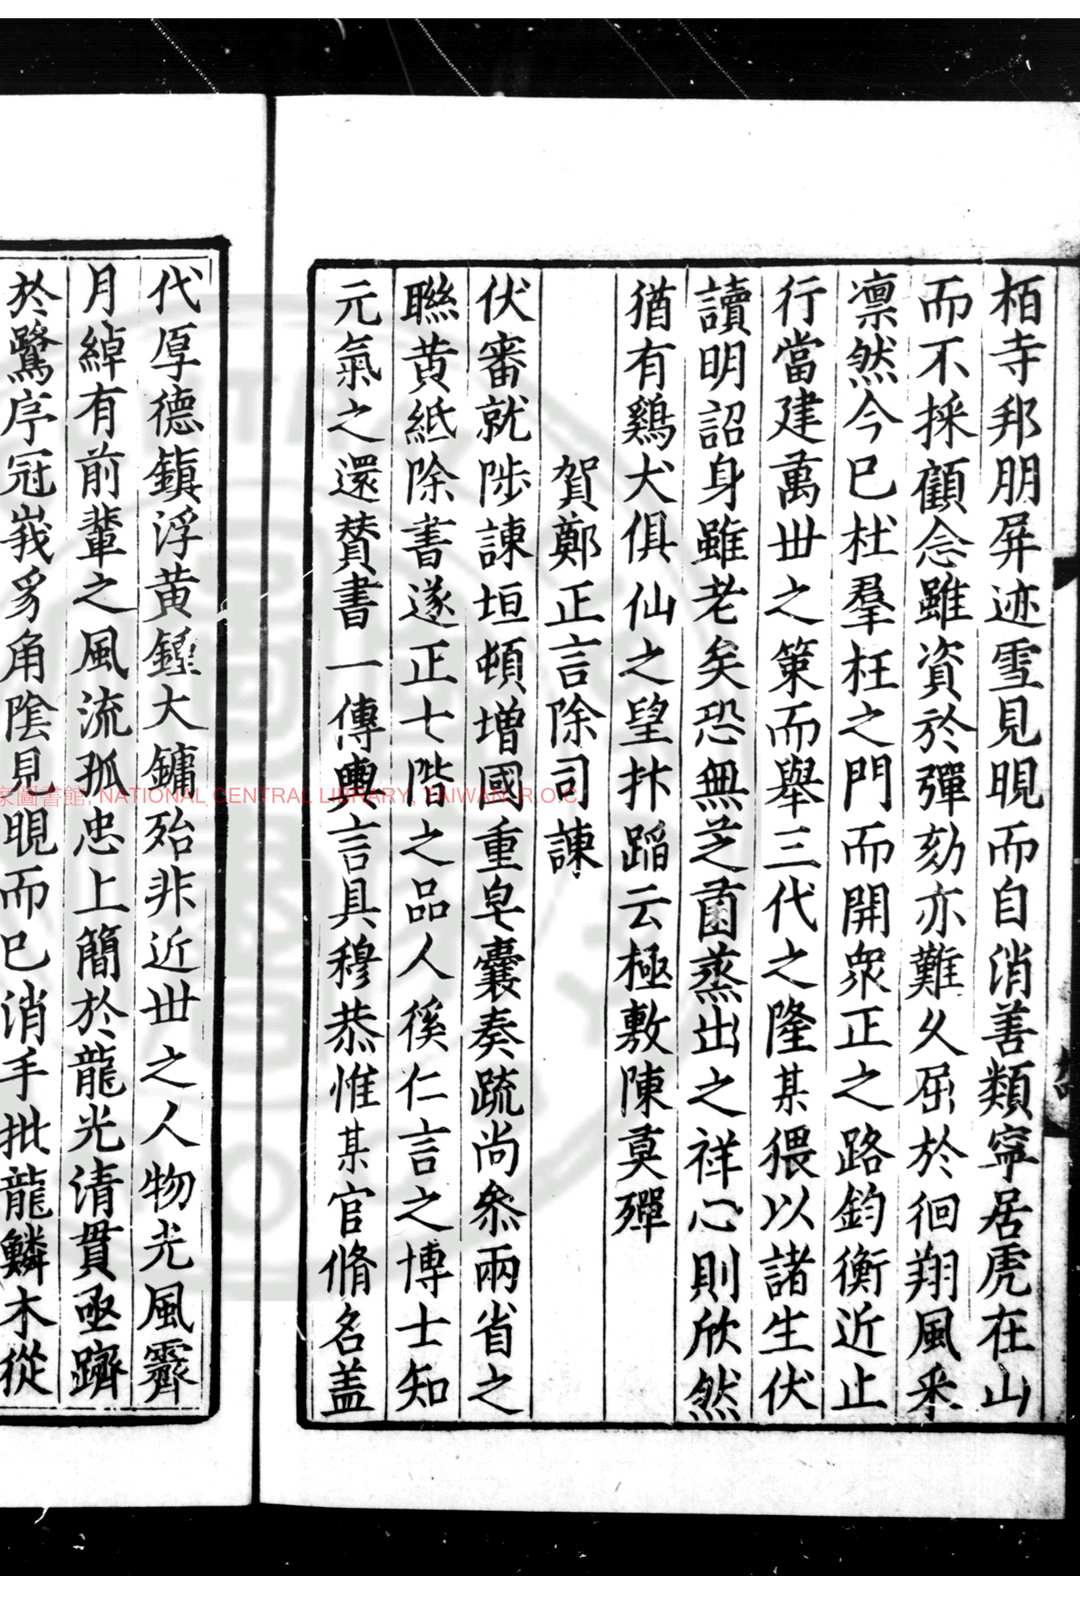 栢寺邦朋屏迹雪見晛而自消善類寧居虎在山
而不採顧念雖資於彈劾亦難久屈於徊翔風采
凛然今已杜羣枉之門而開衆正之路鈞衡近止
行當建萬丗之策而舉三代之隆某猥以諸生伏
讀明詔身雖老矣恐無芝菌蒸出之祥心則欣然
猶有鷄犬俱仙之望抃蹈云極敷陳莫殫
賀鄭正言除司諫
伏審就陟諫垣頓增國重皂囊奏疏尚叅兩省之
聯黄紙除書遂正七階之品人徯仁言之博士知
元氣之還賛書一傳輿言具穆恭惟某官脩名盖
代厚德鎮浮黄鍾大鏞殆非近丗之人物光風霽
月綽有前輩之風流孤忠上簡於龍光清貫亟躋
於鷺序冠峩豸角隂見晛而巳消手批龍鱗木從
家圖書館, NATIONAL CENTRAL LIBRARY, TAIWAN, R.O.C.